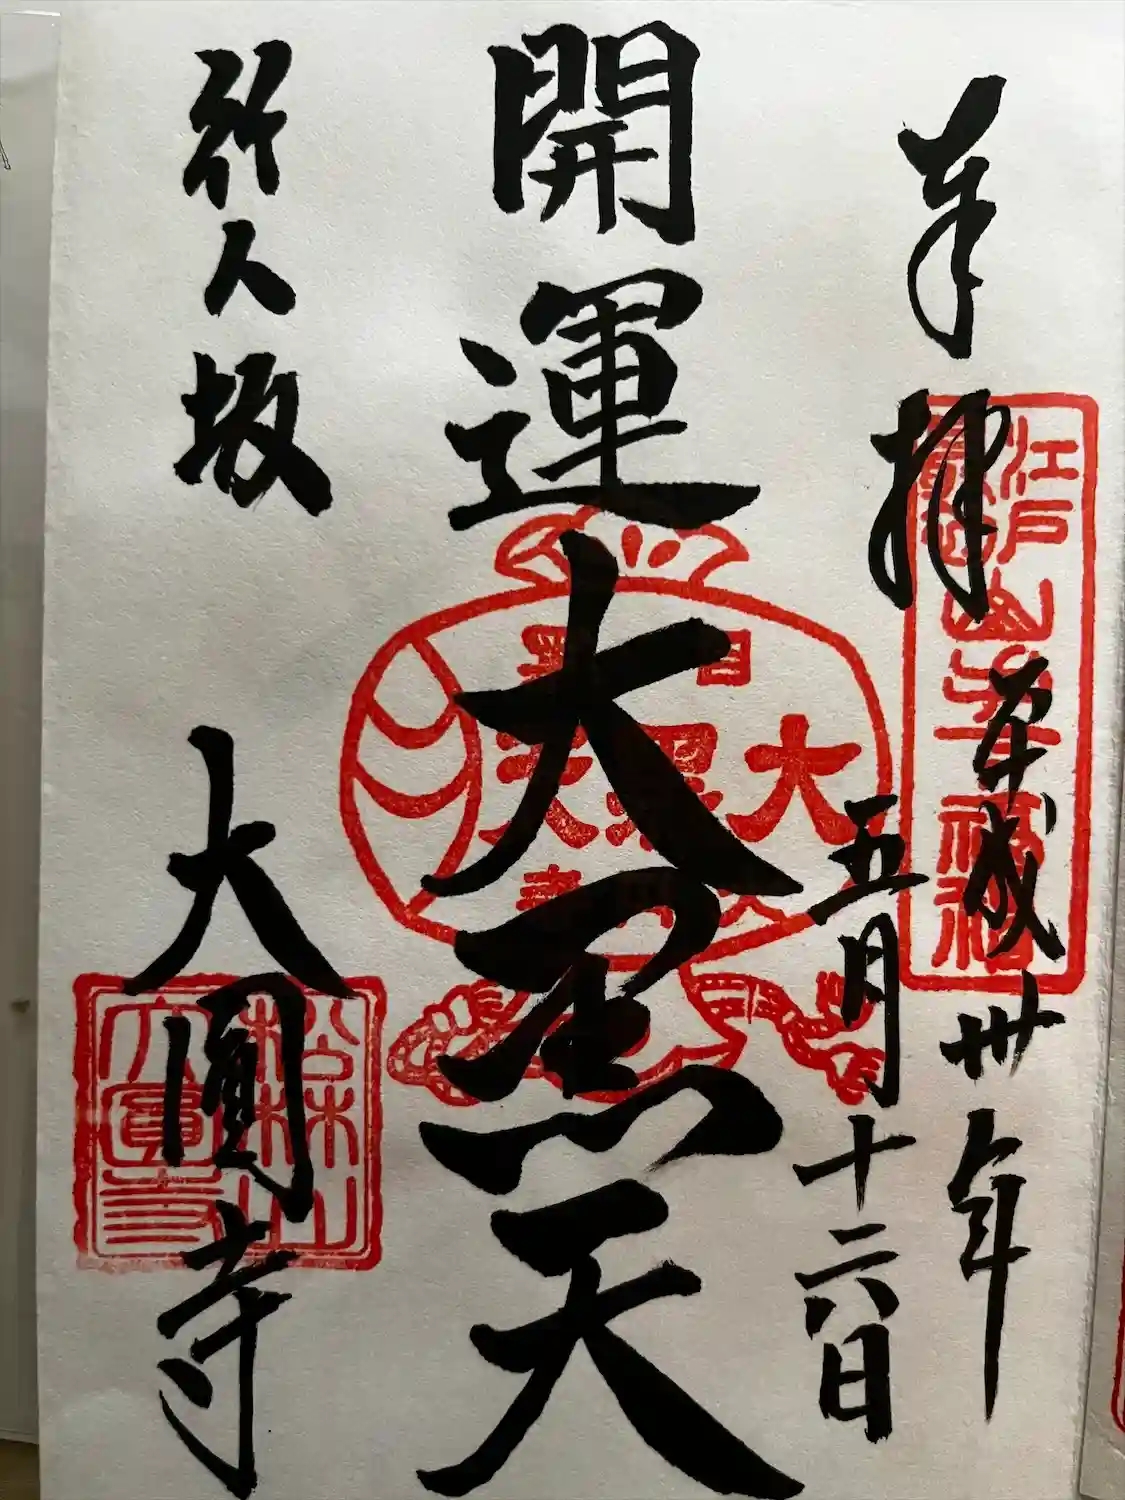 奉拝
平成卅年
五月十六日
開運大黒天
行人坂
大圓寺
江戸
山手
大黒天
松林山
大圓寺